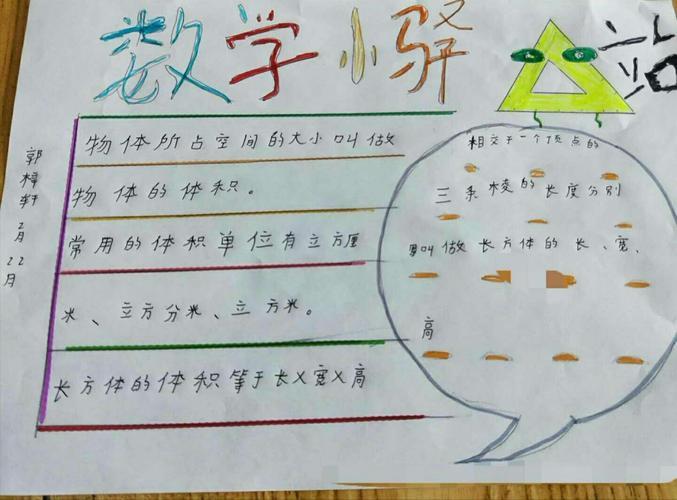 数学小驿站
郭梓轩 2月22月
物体所占空间的大小叫做
物体的体积。
常用的体积单位有立方厘
米、立方分米、立方米。
长方体的体积等于长X宽X高
相交于一个顶点的
三条棱的长度分别
叫做长方体的长、宽、
高